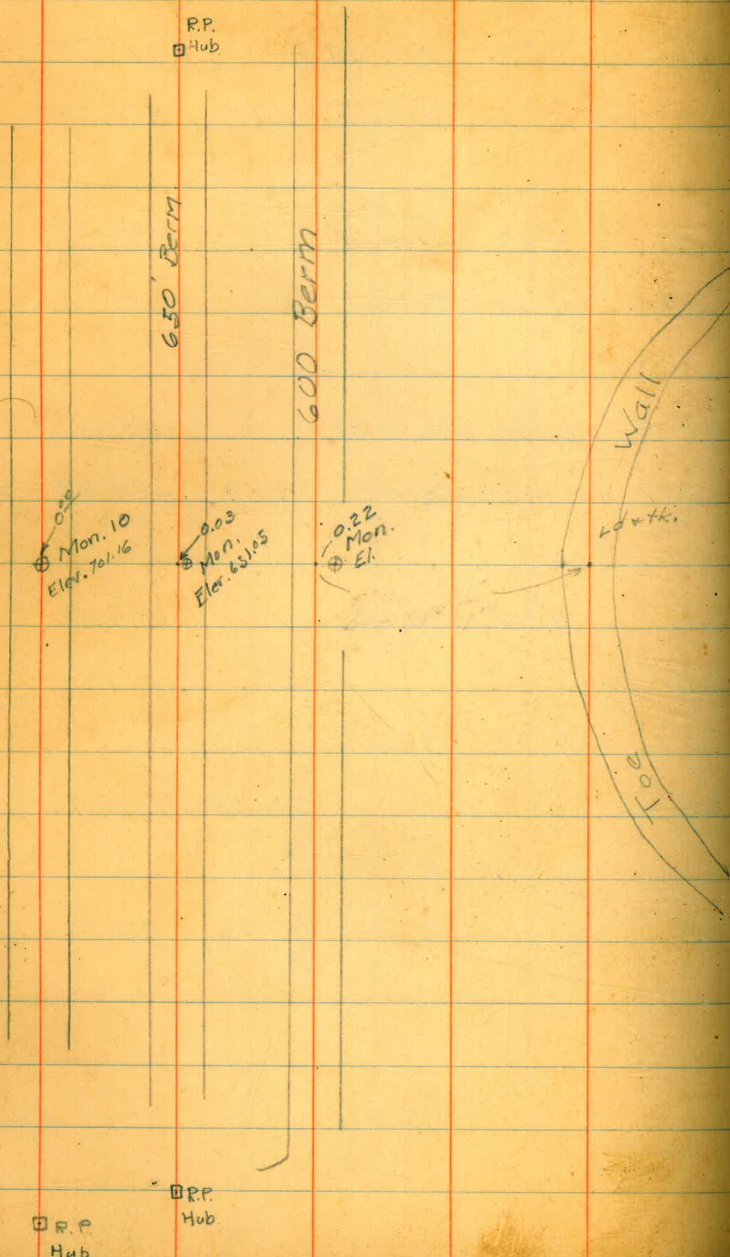 R.P.
Hub
650' Berm
600 Berm
Wall
0.00
Mon. 10
Elev. 701.16
0.03
Mon.
Elev. 651.05
0.22
Mon.
El.
Ld & tk.
Toe
R.P.
Hub
R.P.
Hub